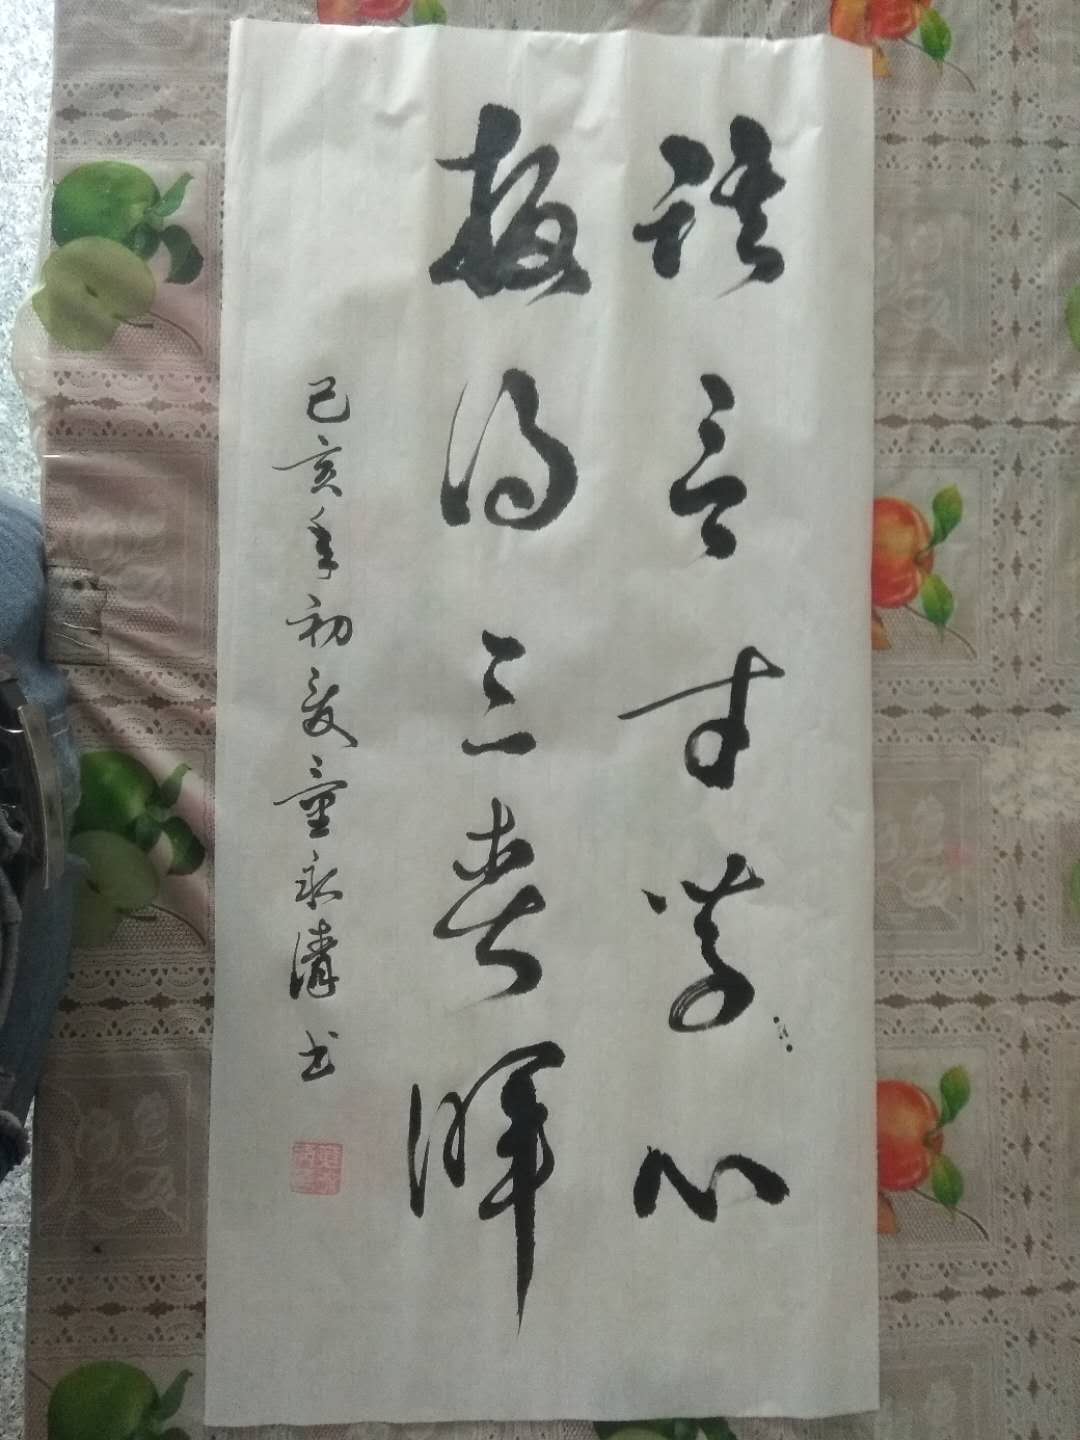 谁言寸草心
报得三春晖
己亥年初夏童永清书